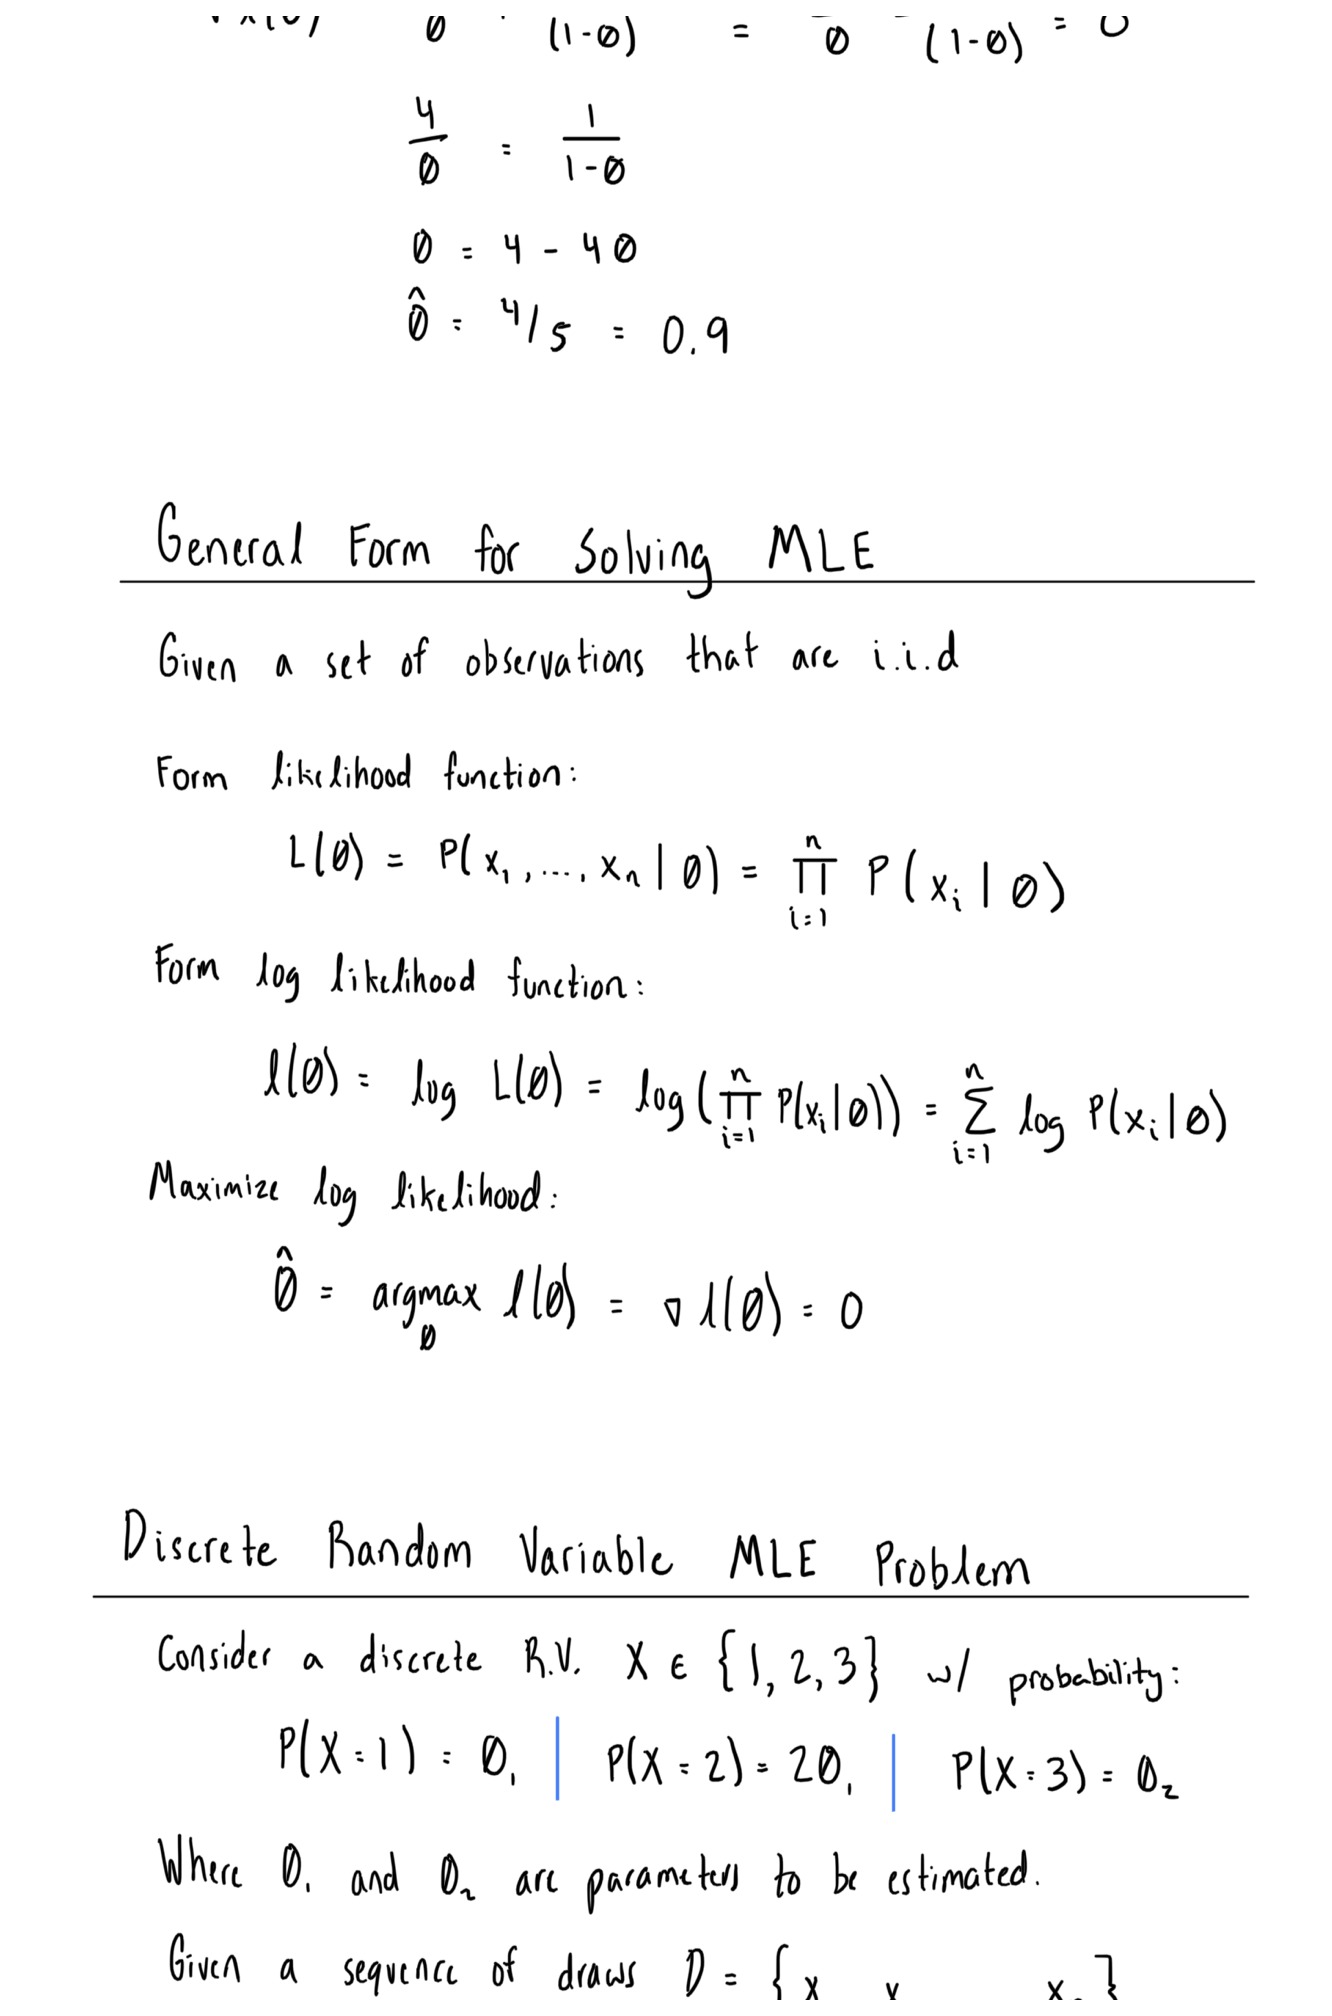 θ (1-θ) = θ (1-θ) = 0
4/θ = 1/(1-θ)
θ = 4 - 4θ
θ̂ = 4/5 = 0.9
General Form for Solving MLE
Given a set of observations that are i.i.d
Form likelihood function:
L(θ) = P(x₁, ..., xₙ | θ) = ∏ⁿᵢ₌₁ P(xᵢ | θ)
Form log likelihood function:
l(θ) = log L(θ) = log(∏ⁿᵢ₌₁ P(xᵢ|θ)) = Σⁿᵢ₌₁ log P(xᵢ|θ)
Maximize log likelihood:
θ̂ = argmax_θ l(θ) = ∇ l(θ) = 0
Discrete Random Variable MLE Problem
Consider a discrete R.V. X ∈ {1, 2, 3} w/ probability:
P(X = 1) = θ₁ | P(X = 2) = 2θ₁ | P(X = 3) = θ₂
Where θ₁ and θ₂ are parameters to be estimated.
Given a sequence of draws D = {x x x }